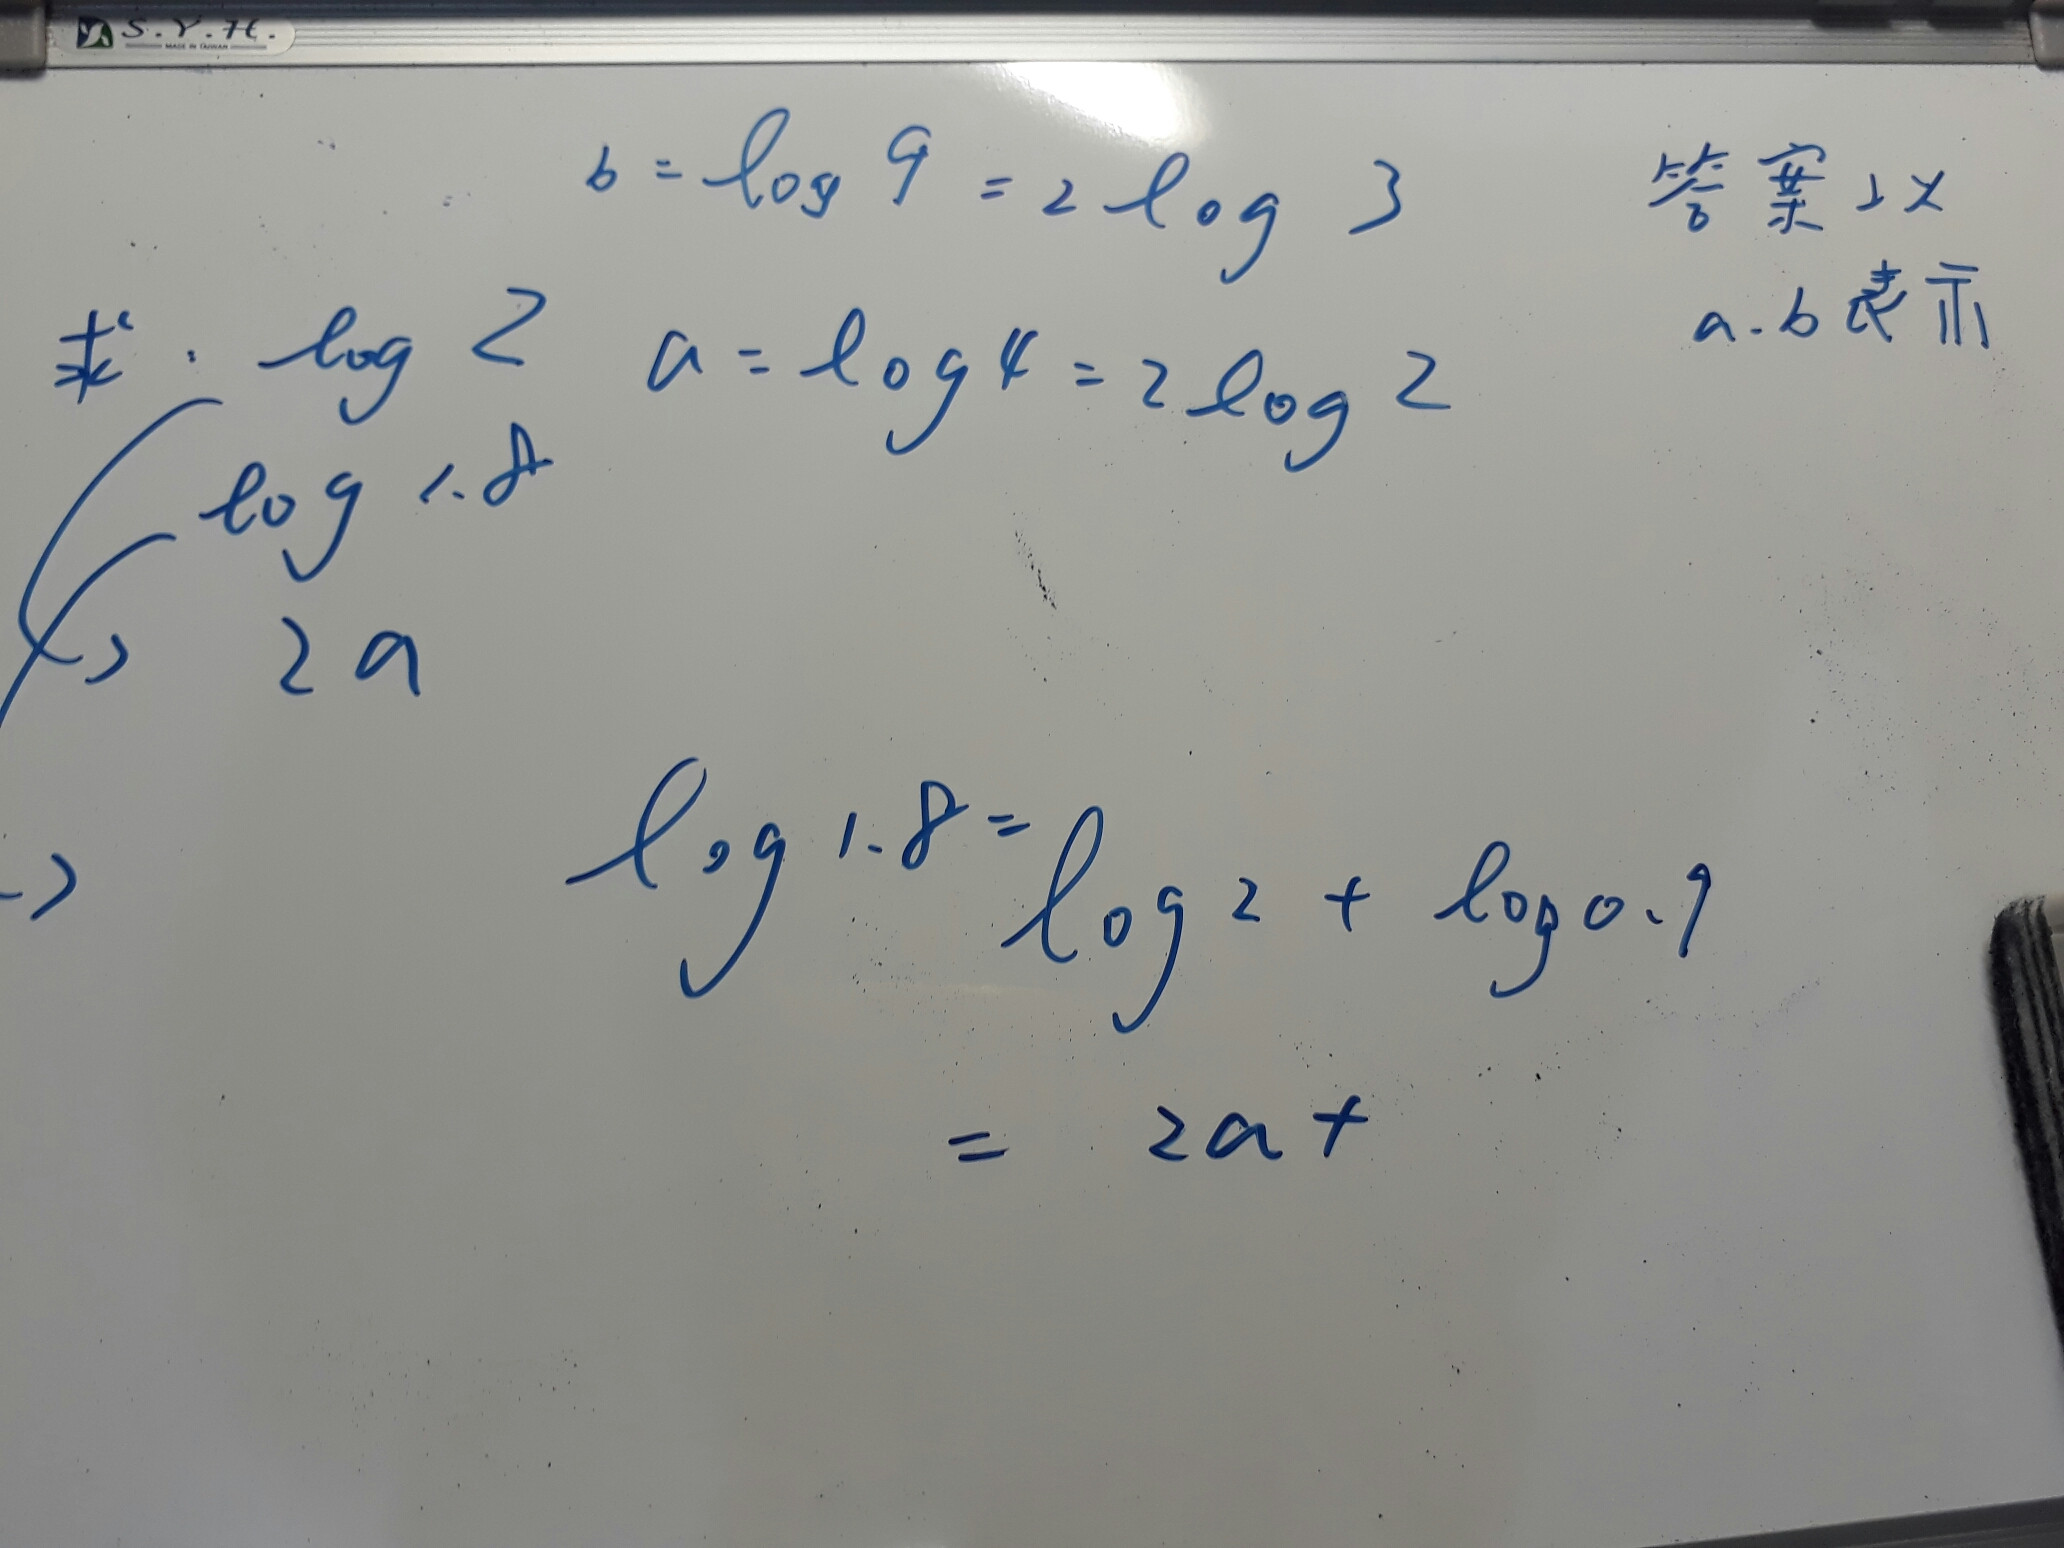 S.Y.H.
MADE IN TAIWAN
b = log 9 = 2 log 3
答案以
a.b表示
求: log 2
a = log 4 = 2 log 2
log 1.8
→ 2a
log 1.8 = log 2 + log 0.9
→
= 2a +